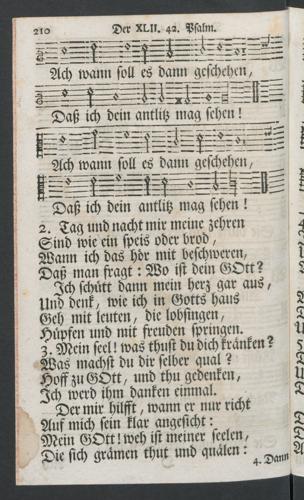 210 Der XLII. 42. Psalm.
Ach wann soll es dann geschehen,
Daß ich dein antlitz mag sehen!
Ach wann soll es dann geschehen,
Daß ich dein antlitz mag sehen!
2. Tag und nacht mir meine zehren
Sind wie ein speis oder brod,
Wann ich das hör mit beschweren,
Daß man fragt: Wo ist dein GOtt?
Ich schütt dann mein herz gar aus,
Und denk, wie ich in Gotts haus
Geh mit leuten, die lobsingen,
Hüpfen und mit freuden springen.
3. Mein seel! was thust du dich kränken?
Was machst du dir selber qual?
Hoff zu GOtt, und thu gedenken,
Ich werd ihm danken einmal.
Der mir hilfft, wann er nur richt
Auf mich sein klar angesicht:
Mein GOtt! weh ist meiner seelen,
Die sich grämen thut und quälen:
4. Dann